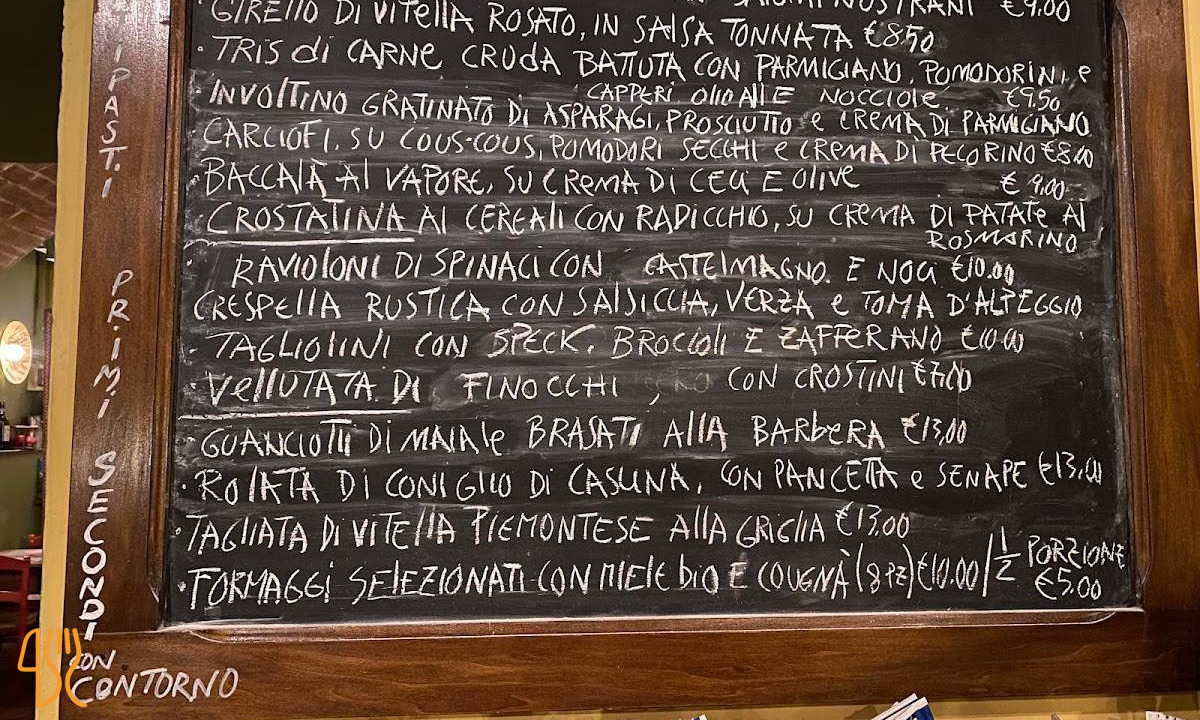 NOSTRANI €9,00
GIRELLO DI VITELLA ROSATO, IN SALSA TONNATA €8,50
TRIS di CARNE CRUDA BATTUTA CON PARMIGIANO, POMODORINI e
CAPPERI OLIO ALLE NOCCIOLE €9,50
INVOLTINO GRATINATO DI ASPARAGI, PROSCIUTTO e CREMA DI PARMIGIANO
CARCIOFI, SU COUS-COUS, POMODORI SECCHI e CREMA DI PECORINO
BACCALÀ Al VAPORE, SU CREMA DI CECI E OLIVE € 9,00
CROSTATINA AI CEREALI CON RADICCHIO, SU CREMA DI PATATE AL
ROSMARINO
RAVIOLONI DI SPINACI CON CASTELMAGNO E NOCI €10.00
CRESPELLA RUSTICA CON SALSICCIA, VERZA e TOMA D'ALPEGGIO
TAGLIOLINI CON SPECK, BROCCOLI E ZAFFERANO €10.00
VELLUTATA DI FINOCCHI CON CROSTINI €7,00
GUANCIOTTI DI MAIALE BRASATI ALLA BARBERA €13,00
ROLATA DI CONIGLIO DI CASCINA, CON PANCETTA e SENAPE €13,00
TAGLIATA DI VITELLA PIEMONTESE ALLA GRIGLIA €13,00
FORMAGGI SELEZIONATI CON MIELE BIO E COUGNÀ (8 PZ) €10.00 / 1/2 PORZIONE
€5.00
IPASTI
PRIMI
SECONDI
CON
CONTORNO